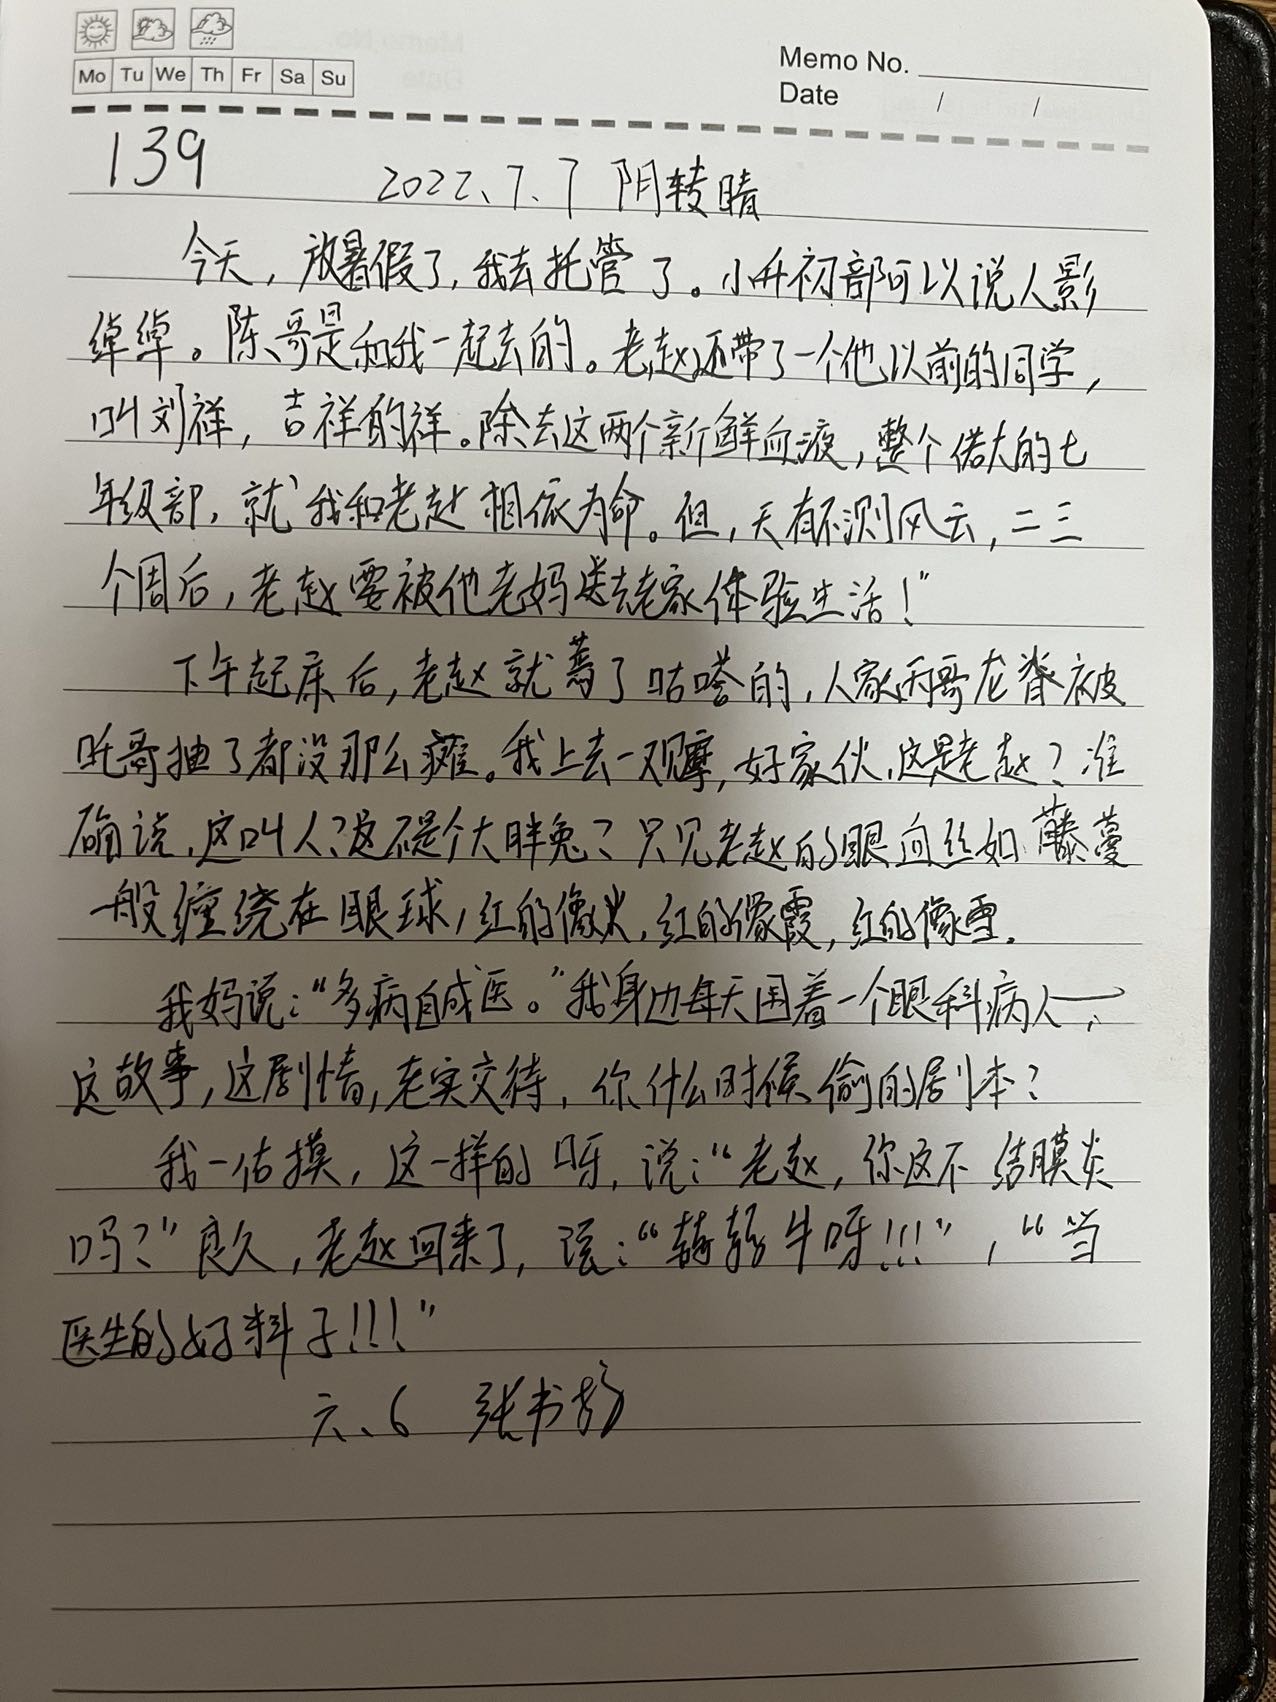 Mo Tu We Th Fr Sa Su
Memo No.
Date / /
139
2022、7、7 阴转晴
今天，放暑假了，我去托管了。小升初部可以说人影
绰绰。陈哥是和我一起去的。老赵还带了一个他以前的同学，
叫刘祥，吉祥的祥。除去这两个新鲜血液，整个偌大的七
年级部，就我和老赵相依为命。但，天有不测风云，二三
个周后，老赵要被他老妈送去老家体验生活！”
下午起床后，老赵就蔫了咕嗒的，人家丙哥龙脊被
吒哥抽了都没那么瘫。我上去一观摩，好家伙，这是老赵？准
确说，这叫人？这不是个大胖兔？只见老赵的眼血丝如藤蔓
一般缠绕在眼球，红的像火，红的像霞，红的像雪.
我妈说：“多病自成医。”我身边每天围着一个眼科病人——，
这故事，这剧情，老实交待，你什么时候偷的剧本？
我一估摸，这一样的呀，说：“老赵，你这不结膜炎
吗？”良久，老赵回来了，说：“牛呀!!!”，“当
医生的好料子!!!”
六、6 张书